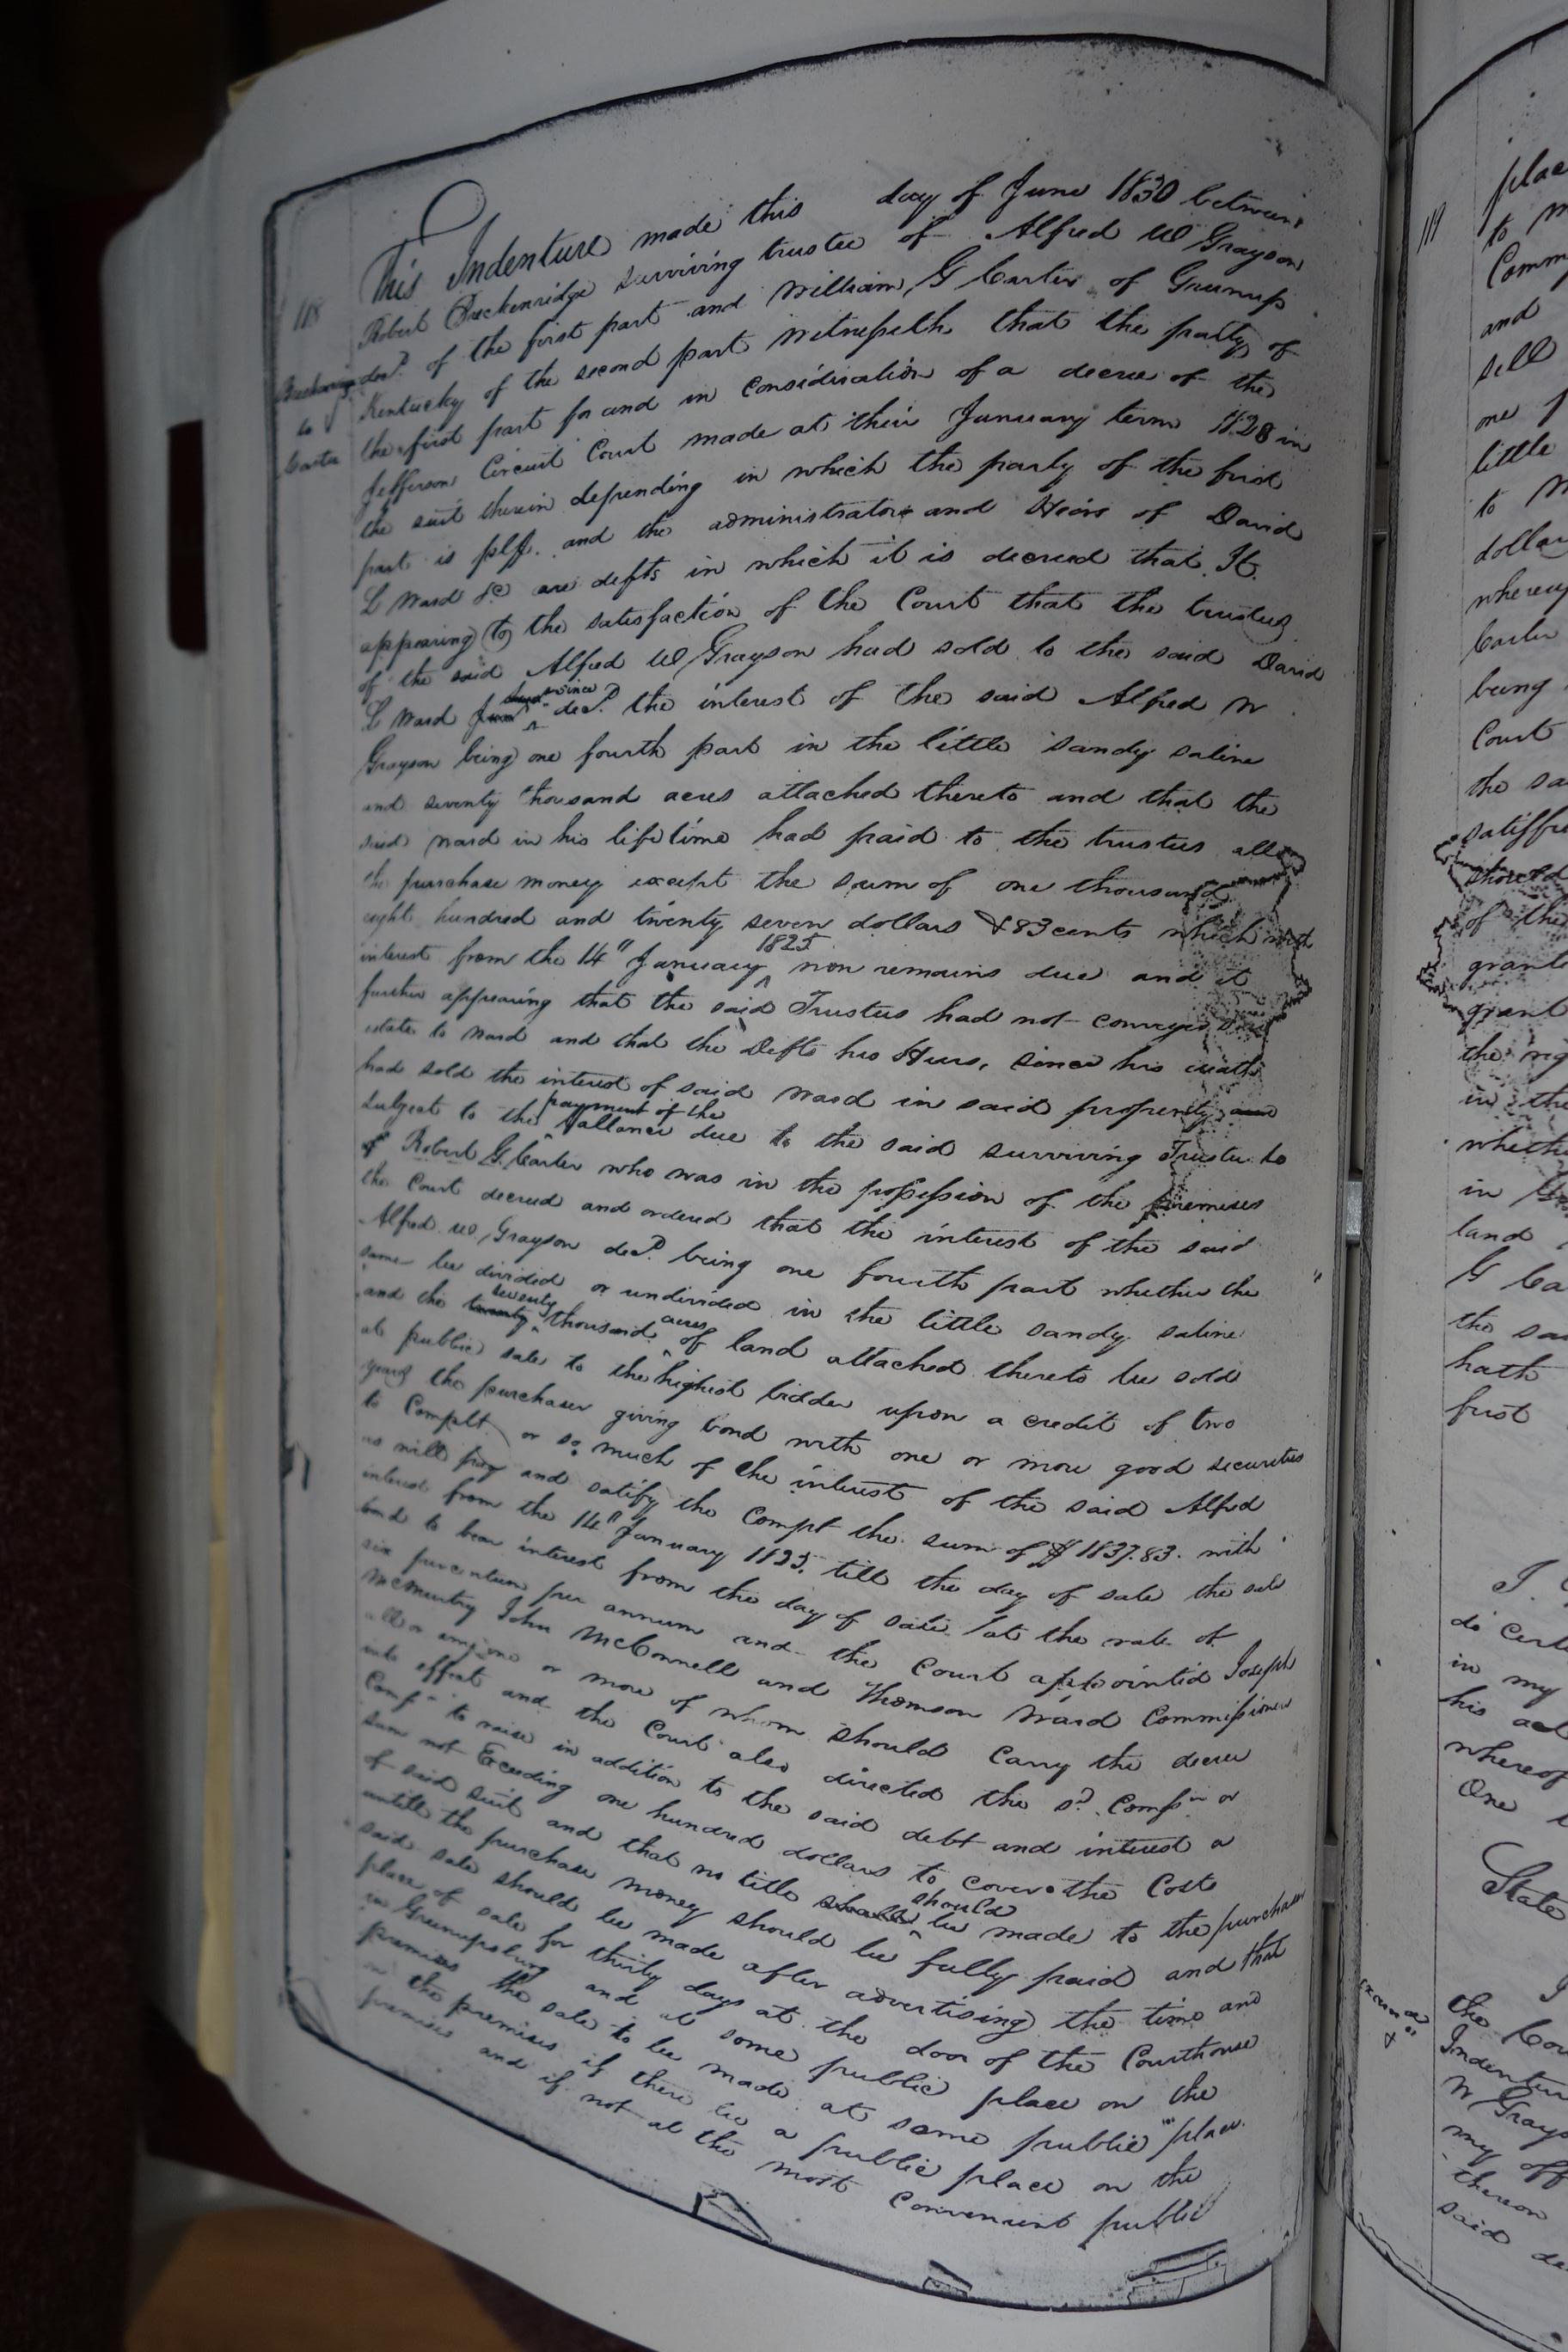 118
Breckenridge
to
Carter
This Indenture made this day of June 1830 between
Robert Breckenridge surviving trustee of Alfred W Grayson
decd. of the first part and William G Carter of Greenup
Kentucky of the second part Witnesseth that the party of
the first part for and in consideration of a decree of the
Jefferson Circuit Court made at their January term 1828 in
the suit therein depending in which the party of the first
part is plff. and the administrators and Heirs of David
L Ward &c are defts in which it is decreed that It
appearing to the satisfaction of the Court that the trustees
of the said Alfred W Grayson had sold to the said David
L Ward since decd. the interest of the said Alfred W
Grayson being one fourth part in the little sandy saline
and seventy thousand acres attached thereto and that the
said Ward in his lifetime had paid to the trustees all
the purchase money except the sum of one thousand
eight hundred and twenty seven dollars & 83 cents which with
interest from the 14" January 1825 now remains due and it
further appearing that the said Trustees had not conveyed said
estate to Ward and that the Defts his Heirs, since his death
had sold the interest of said Ward in said property
subject to the payment of the ballance due to the said surviving Trustee to
Robert G Carter who was in the possession of the premises
the Court decreed and ordered that the interest of the said
Alfred W Grayson decd. being one fourth part whether the
same be divided or undivided in the little sandy saline
and the twenty seventy thousand acres of land attached thereto be sold
at public sale to the highest bidder upon a credit of two
years the purchaser giving bond with one or more good securities
to Complt or so much of the interest of the said Alfred
as will pay and satify the Complt the sum of $1837.83. with
interest from the 14" January 1825. till the day of sale the sale
bond to bear interest from the day of sale at the rate of
six per centum per annum and the Court appointed Joseph
McMurtry John McConnell and Thomson Ward Commissioners
all or any one or more of whom should carry the decree
into effect and the Court also directed the sd. Comsr or
Comsrs to raise in addition to the said debt and interest a
sum not Exceeding one hundred dollars to cover the Costs
of said suit and that no title should be made to the purchaser
untill the purchase money should be fully paid and that
said sale should be made after advertising the time and
place of sale for thirty days at the door of the Courthouse
in Greenupsburg and at some public place on the
premises the sale to be made at some public place
on the premises if there be a public place on the
premises and if not at the most convenient public
119
place
to
Comm
and
sell
one
little
to
dollar
whereup
Carter
being
Court
the sa
satisfa
should
of the
grante
grant
the rig
in the
whethe
in
land
G Ca
the sa
hath
first
do certi
in my
his act
whereof
One
State
Examd
the Cou
Indentur
W Grays
my off
thereon
said de